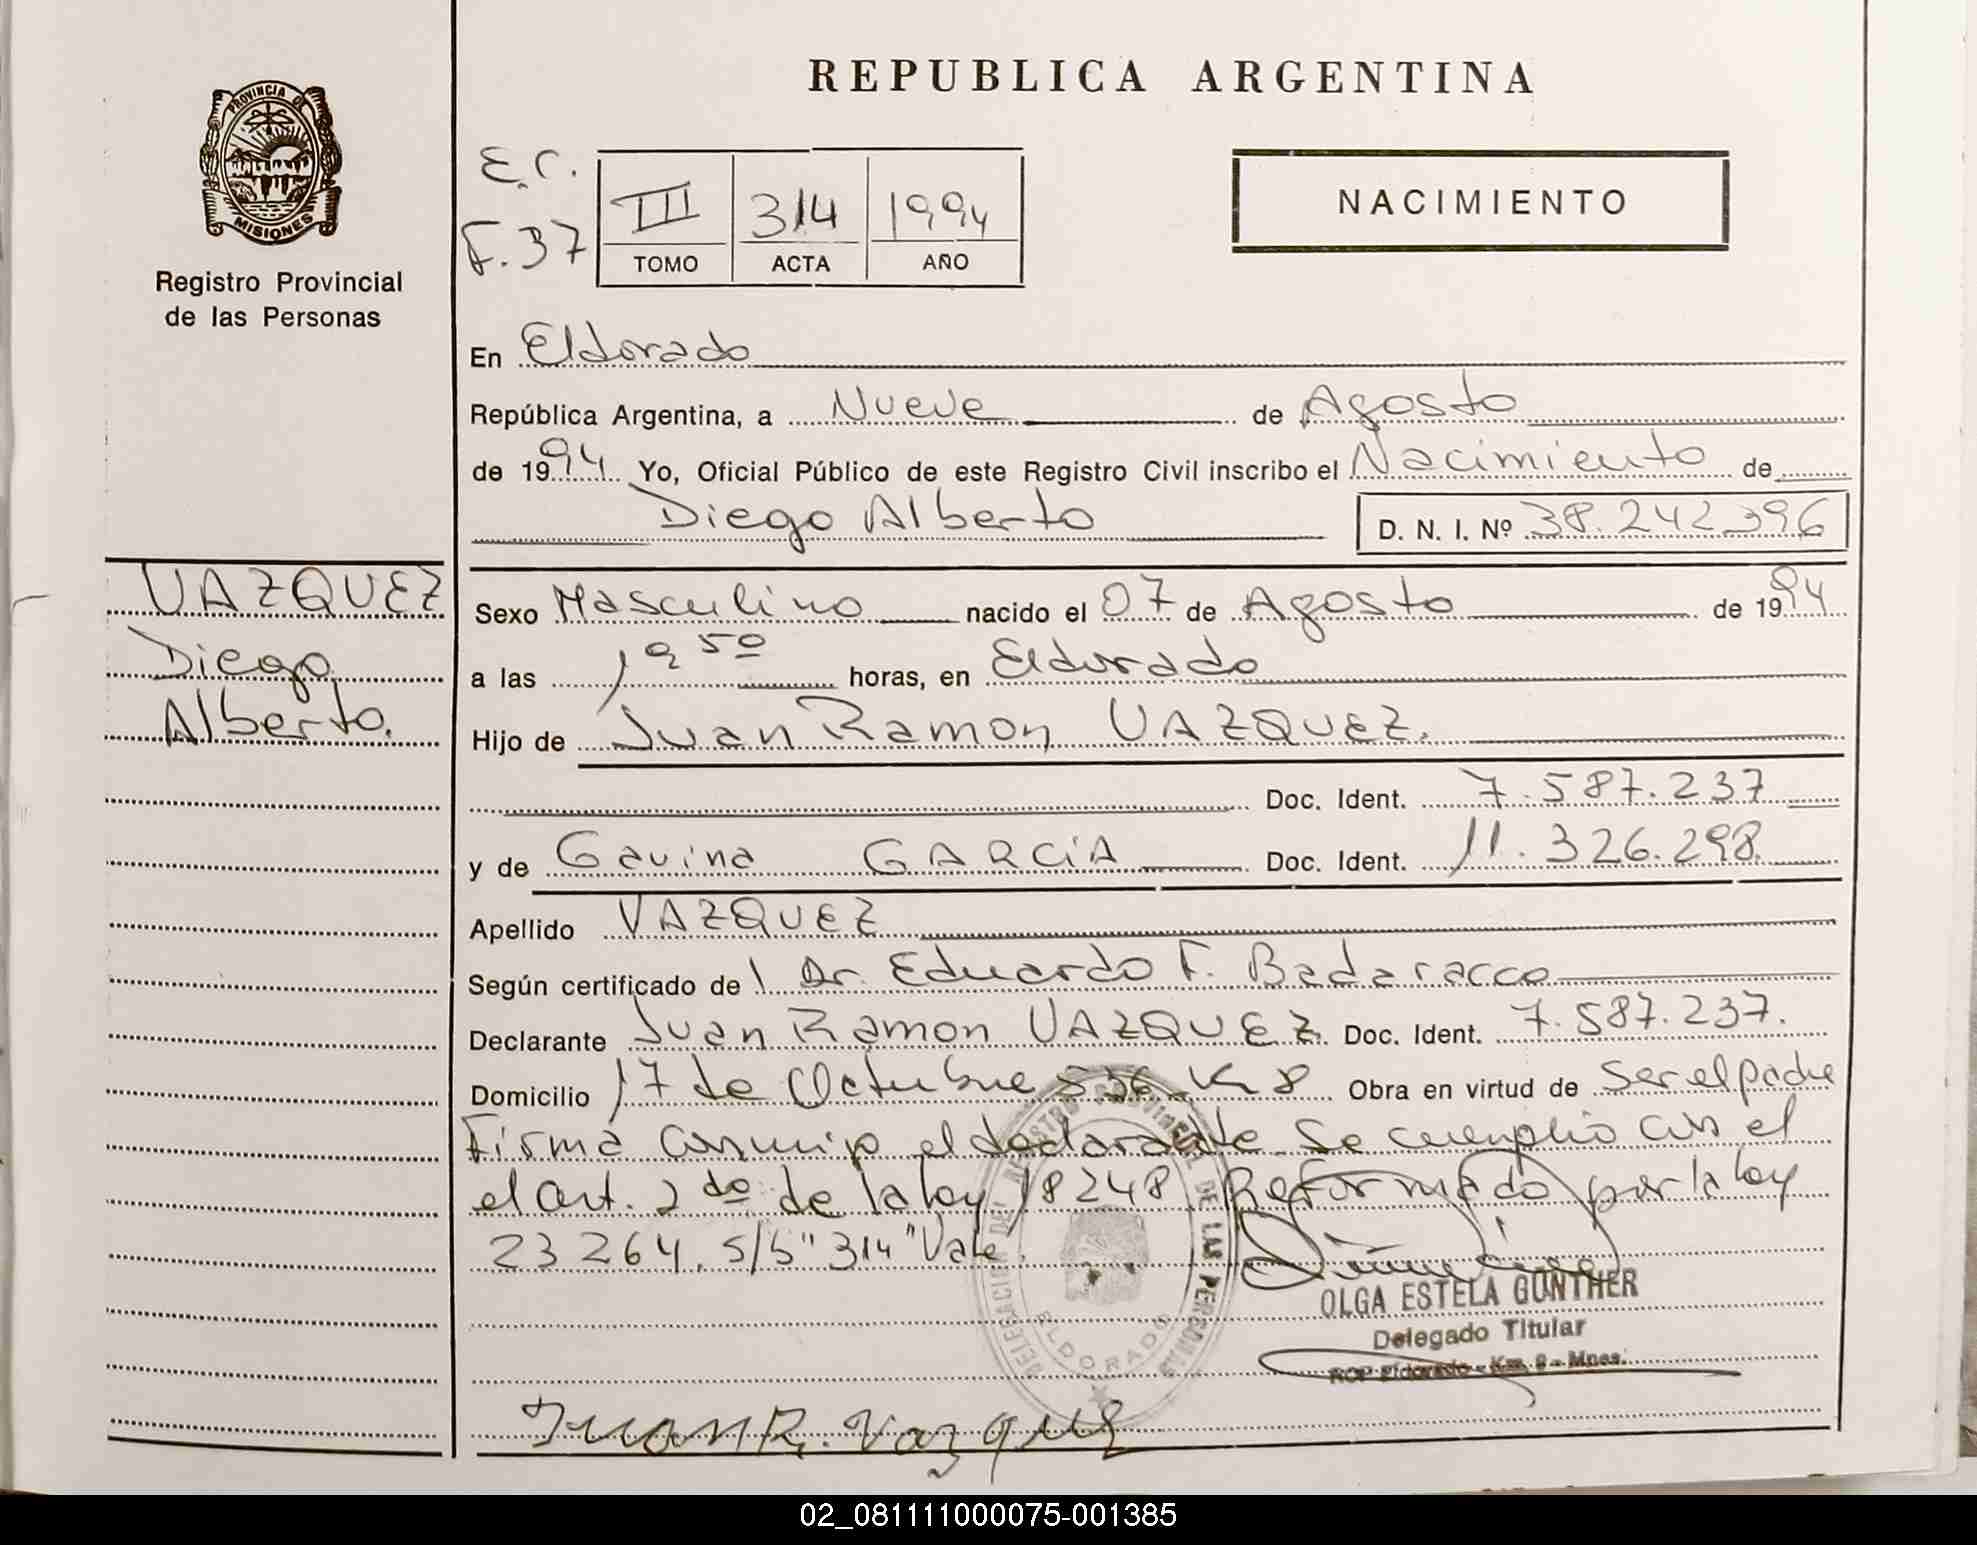 REPUBLICA ARGENTINA
PROVINCIA DE
MISIONES
Registro Provincial
de las Personas
E.C.
F.37
III 314 1994
TOMO ACTA AÑO
NACIMIENTO
En Eldorado
República Argentina, a Nueve de Agosto
de 1994 Yo, Oficial Público de este Registro Civil inscribo el Nacimiento de
Diego Alberto D. N. I. Nº 38.242.396
VAZQUEZ
Diego
Alberto.
Sexo Masculino nacido el 07 de Agosto de 1994
a las 19 50 horas, en Eldorado
Hijo de Juan Ramon VAZQUEZ.
Doc. Ident. 7.587.237
y de Gavina GARCIA Doc. Ident. 11.326.298
Apellido VAZQUEZ
Según certificado de Dr. Eduardo F. Badaracco
Declarante Juan Ramon VAZQUEZ Doc. Ident. 7.587.237.
Domicilio 17 de Octubre 536 Km 8 Obra en virtud de Ser el padre
Firma conmigo el declarante Se cumplió con el
el art. 2 do de la ley 18248 Reformado por la ley
23264. S/b "314" Vale.
DELEGACION DEL REGISTRO PROVINCIAL DE LAS PERSONAS
ELDORADO
OLGA ESTELA GÜNTHER
Delegado Titular
RCP Eldorado - Km. 9 - Mnes.
Juan R. Vazquez
02_081111000075-001385